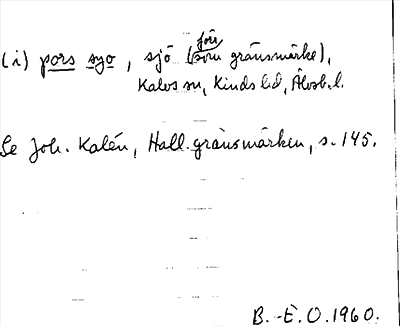 (i) pors syo, sjö (som gränsmärke),
Kalvs sn, Kinds hd, Älvsb. l.
Se Joh. Kalén, Hall. gränsmärken, s. 145.
B.-E. O. 1960.